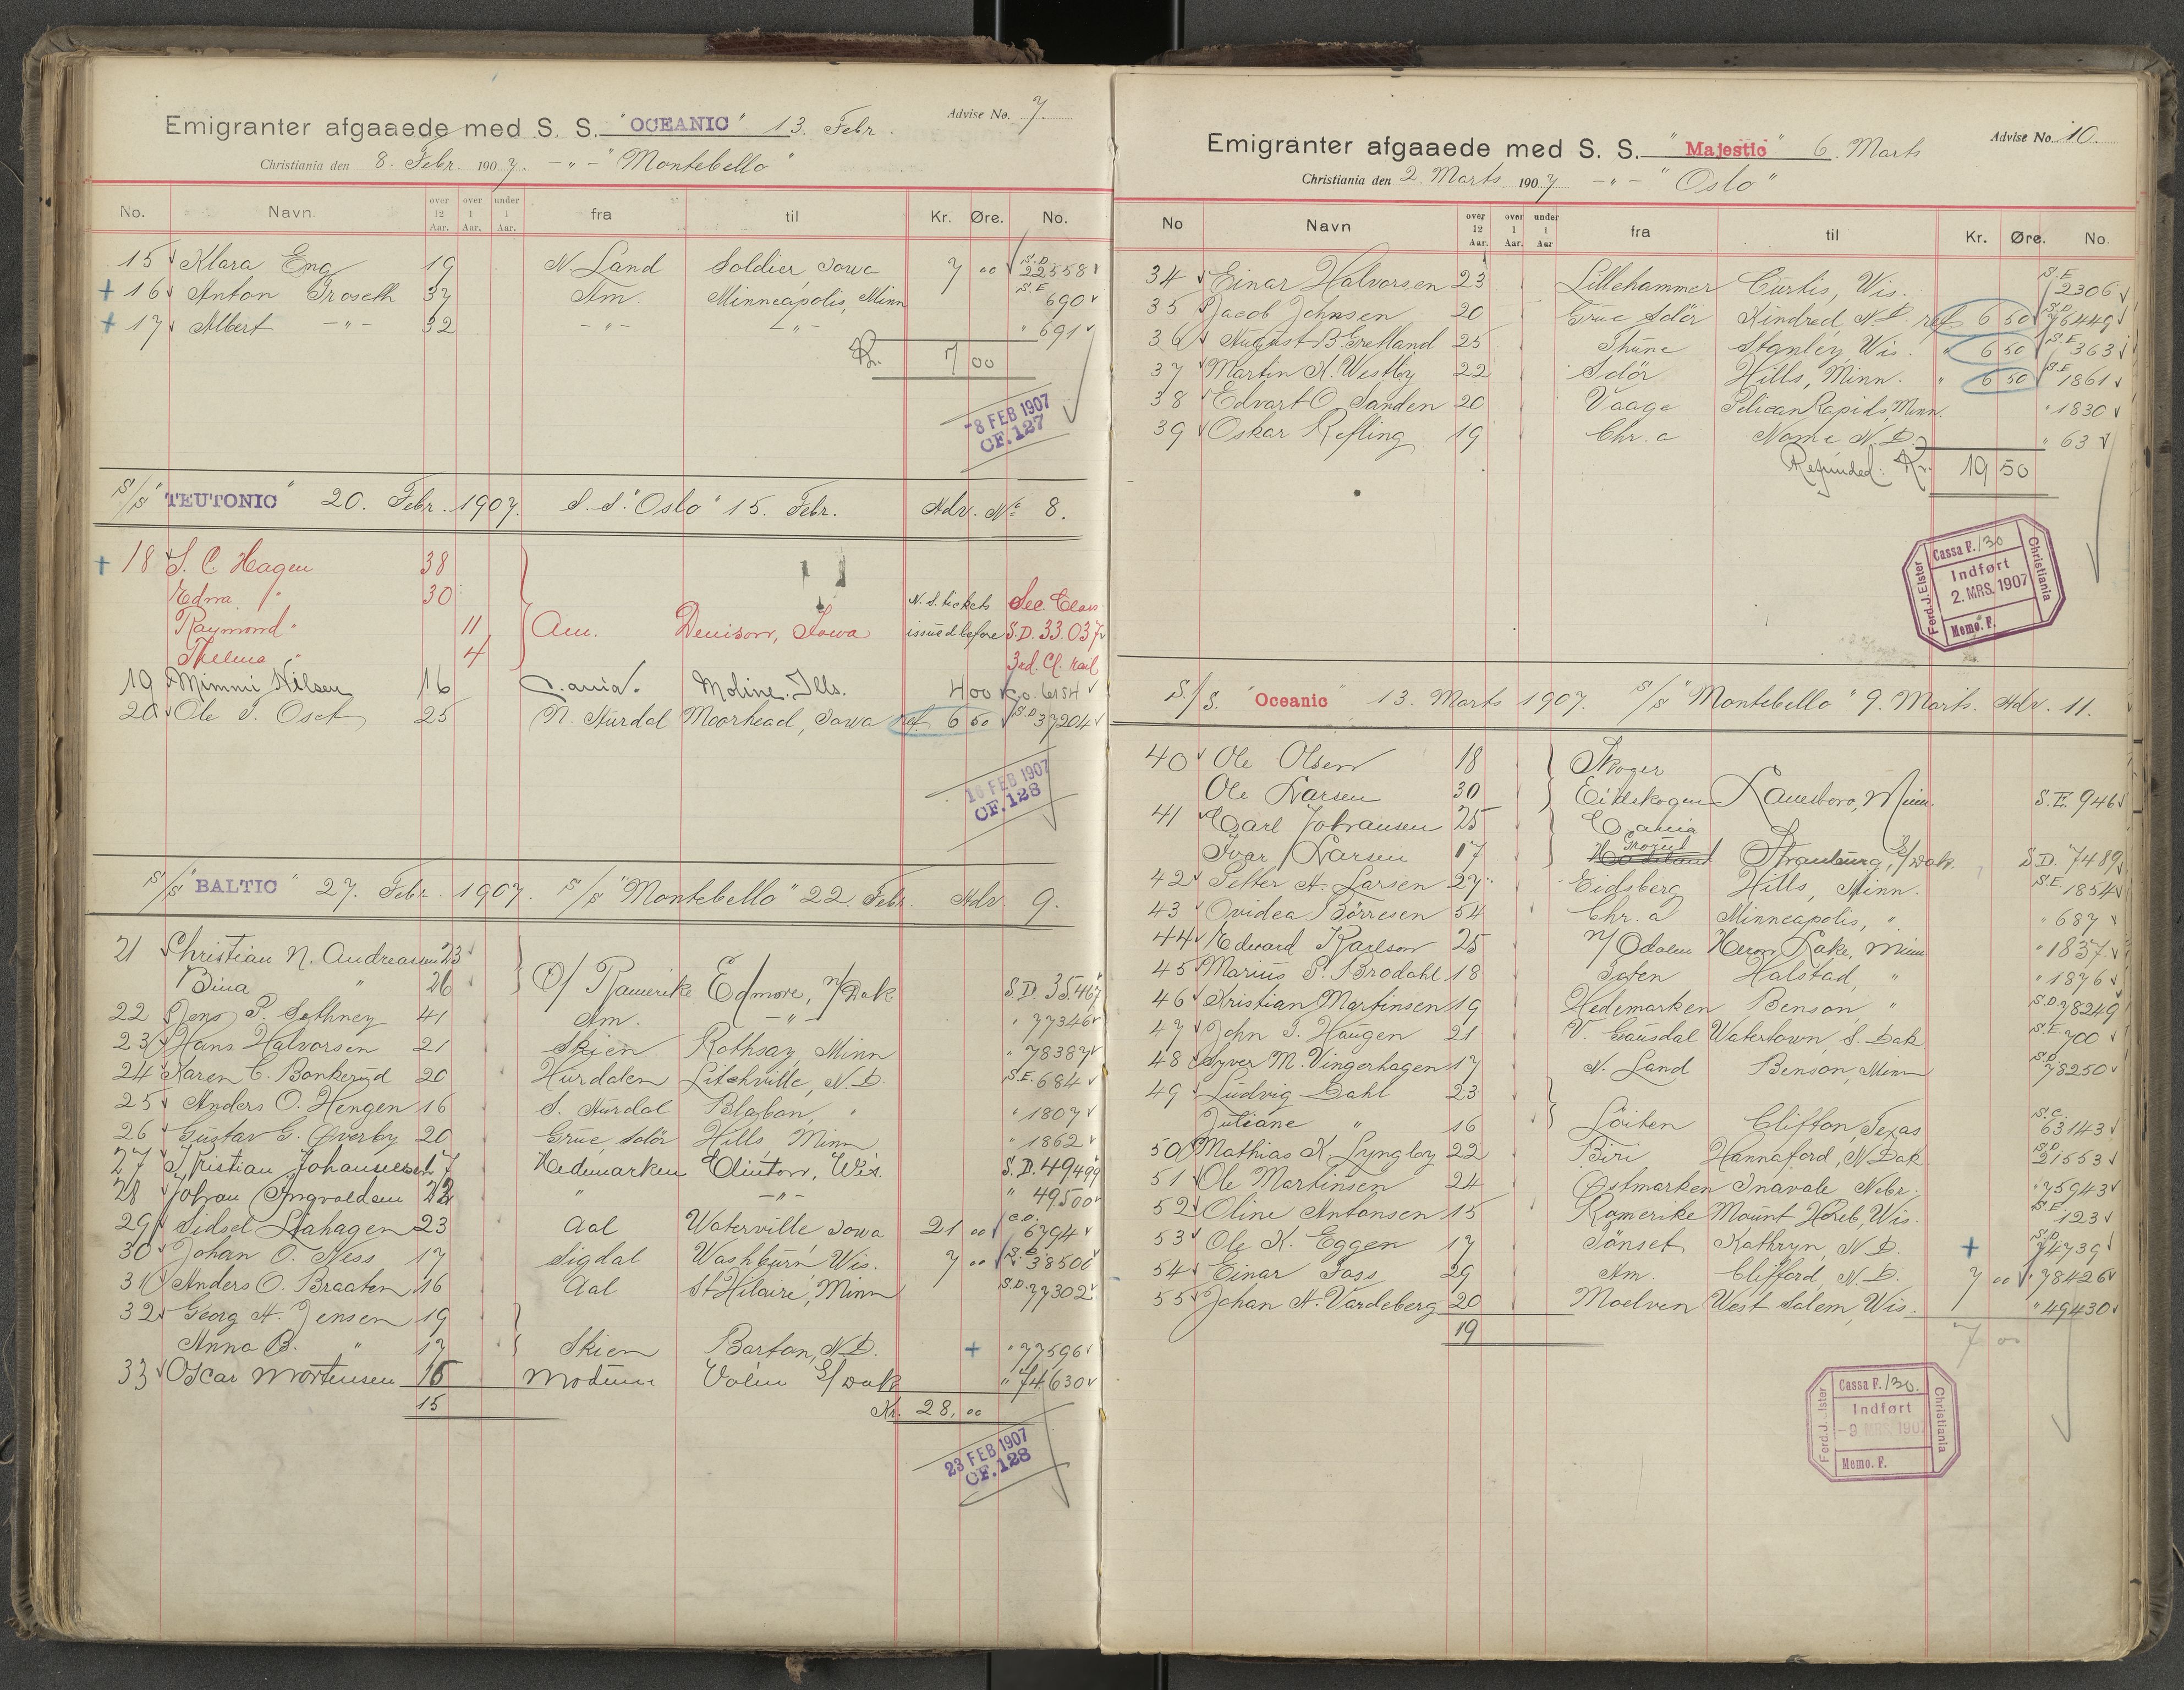 Emigranter afgaaede med S. S. "OCEANIC" 13. Febr. Advise No. 7.
Christiania den 8. Febr. 1907. -"- "Montebello"
No. Navn over 12 Aar. over 1 Aar. under 1 Aar. fra til Kr. Øre. No.
15 Klara Eng 19 N. Land Soldier, Iowa 7 00 S.D. 22558
+ 16 Anton Troseth 37 Am. Minneapolis, Minn S.E. 690
+ 17 Albert -"- 32 -"- -"- " 691
Kr. 7 00
-8 FEB 1907
CF. 127
S/S "TEUTONIC" 20. Febr. 1907. S.S. "Oslo" 15. Febr. Adv. No 8.
+ 18 S. C. Hagen 38
Edna " 30 N. S. tickets Sec. Class
Raymond " 11 Am. Denison, Iowa issued before S.D. 33.037
Thelma " 4 3rd. Cl. rail
19 Mimmi Nilsen 16 Moline. Ills. 400 C.O. 6154
20 Ole S. Oset 25 N. Hurdal Moorhead, Iowa ref. 6 50 S.D. 37204
FEB 1907
CF. 128
S/S "BALTIC" 27. Febr. 1907. S/S "Montebello" 22. Febr. Adv. 9.
21 Christian N. Andreasen 23
Bina " 26 O/ Ramerike Edmore, N/Dak S.D. 35467
22 Jens P. Sethney 41 Am. -"- " 77346
23 Hans Halvorsen 21 Skien Rothsay, Minn " 78387
24 Karen C. Bonkerud 20 Hurdalen Litchville, N.D. S.E. 684
25 Anders O. Hengen 16 S. Aurdal Blabon, " " 1807
26 Gustav G. Øverby 20 Grue, Solör Hills, Minn " 1862
27 Kristian Johannessen 17 Hedemarken Clinton, Wis. S.D. 49499
28 Johan Ingvaldsen 22 " -"- " 49500
29 Sidsel Liahagen 23 Aal Waterville Iowa 21 00 C.O. 6794
30 Johan O. Ness 17 Sigdal Washburn Wis. 7 00 S.D. 38506
31 Anders O. Braaten 16 Aal St Hilaire, Minn S.D. 77302
32 Georg A. Jensen 19
Anna B. " 17 Skien Barton, N.D. + " 77596
33 Oscar Mortensen 16 Modum Volin S/Dak " 74630
15 Kr. 28,00
23 FEB 1907
CF. 128
Emigranter afgaaede med S. S. "Majestic" 6. Marts Advise No. 10.
Christiania den 2. Marts 1907 -"- "Oslo"
No Navn over 12 Aar. over 1 Aar. under 1 Aar fra til Kr. Øre. No.
34 Einar Halvorsen 23 Lillehammer Curtis, Wis. S.E. 2306
35 Jacob Johnsen 20 Grue Solör Kindred, N.D. ref. 6 50 S.D. 76449
36 August B. Gretland 25 Thune Stanley, Wis. " 6 50 S.E. 363
37 Martin K. Westby 22 Solör Hills, Minn. " 6 50 S.E. 1861
38 Edvart O. Sanden 20 Vaage Pelican Rapids, Minn. " 1830
39 Oskar Refling 19 Chr.a Nome N.D. " 63
Refunded: Kr. 19 50
Ferd. J. Elster
Cassa F. 130
Indført
2. MRS. 1907
Memo. F.
Christiania
S./S. "Oceanic" 13. Marts 1907. S/S "Montebello" 9. Marts. Adv. 11.
40 Ole Olsen 18 Skoger
Ole Larsen 30 Eidskogen Lanesboro, Minn. S.E. 946
41 Carl Johansen 25 C.ania
Ivar Larsen 17 S/Dak. S.D. 7489
42 Petter A. Larsen 27 Eidsberg Hills, Minn. S.E. 1854
43 Ovidea Börresen 54 Chr.a Minneapolis, " " 687
44 Edward Karlson 25 N/Odalen Heron Lake, Minn " 1837
45 Marius P. Brodahl 18 Toten Halstad, " " 1876
46 Kristian Martinsen 19 Hedemarken Benson, " S.D. 78249
47 John J. Haugen 21 V. Gausdal Watertown, S. Dak S.E. 700
48 Syver M. Vingerhagen 17 N. Land Benson, Minn S.D. 78250
49 Ludvig Dahl 23
Juliane " 16 Löiten Clifton, Texas S.C. 63143
50 Mathias K. Lyngby 22 Biri Hannaford, N. Dak S.D. 21553
51 Ole Martinsen 24 Østmarken Inavale Nebr. " 75943
52 Oline Antonsen 15 Romerike Mount Horeb, Wis. S.E. 123
53 Ole K. Eggen 17 Tönset Kathryn, N.D. + S.D. 74739
54 Einar Foss 29 Am. Clifford, N.D. 7 00 " 78426
55 Johan A. Vardeberg 20 Moelven West Salem, Wis. " 49430
19 7 00
Ferd. J. Elster
Cassa F. 130.
Indført
-9 MRS. 1907
Memo. F.
Christiania